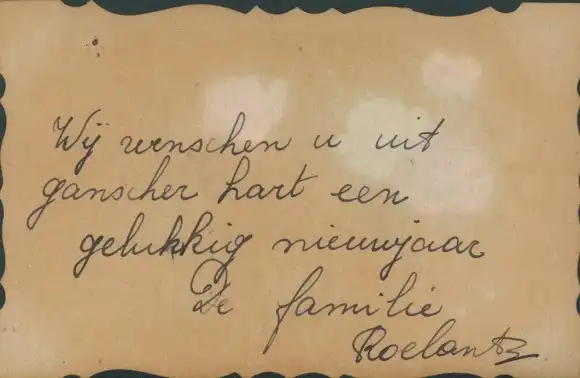 Wij wenschen u uit
ganscher hart een
gelukkig nieuwjaar
De familie
Roelants